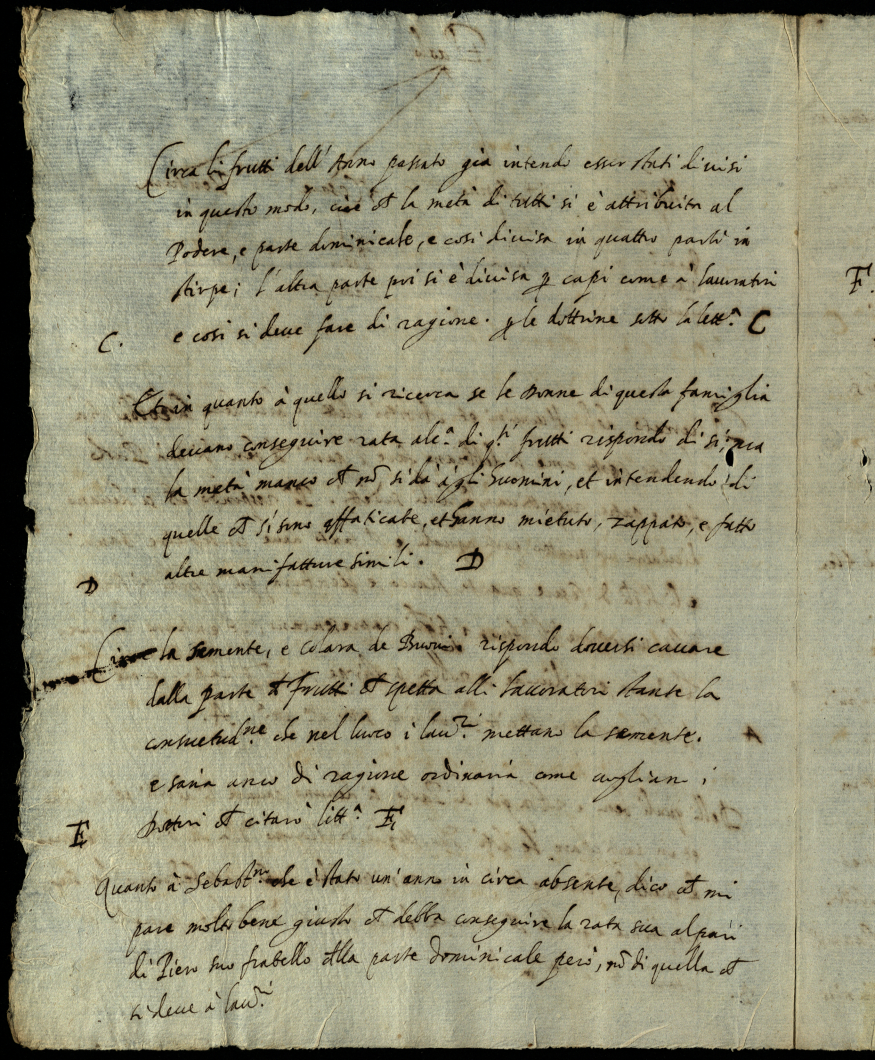 Circa li frutti dell'Anno passato già intendo esser stati divisi
in questo modo, cioè ch la metà di tutti si è attribuita al
Podere, e parte dominicale, e cosi divisa in quattro parti in
stirpe; l'altra parte poi si è divisa p capi come à lavoratori
e cosi si deve fare di ragione. p le dottrine sotto la lettª C
C.
Et in quanto à quello si ricerca se le Donne di questa famiglia
devano conseguire rata alcª di qti frutti rispondo di sì, ma
la metà manco ch nō si dà à gli huomini, et intendendo di
quelle ch si sono affaticate, et hanno mietuto, zappato, e fatto
altre manifatture simili. D
D
Circa la semente, e colara de Buoni rispondo doversi cavare
dalla parte d frutti ch spetta alli lavoratori stante la
consuetudne che nel luoco i lavri mettano la semente.
e saria anco di ragione ordinaria come vogliano i
Dottori ch citarò littª E
E
Quanto à Sebastno che è stato un'anno in circa absente, dico ch mi
pare molto bene giusto ch debba conseguire la rata sua al pari
di Piero suo fratello dlla parte Dominicale però, nō di quella ch
si deve à lavri
F.